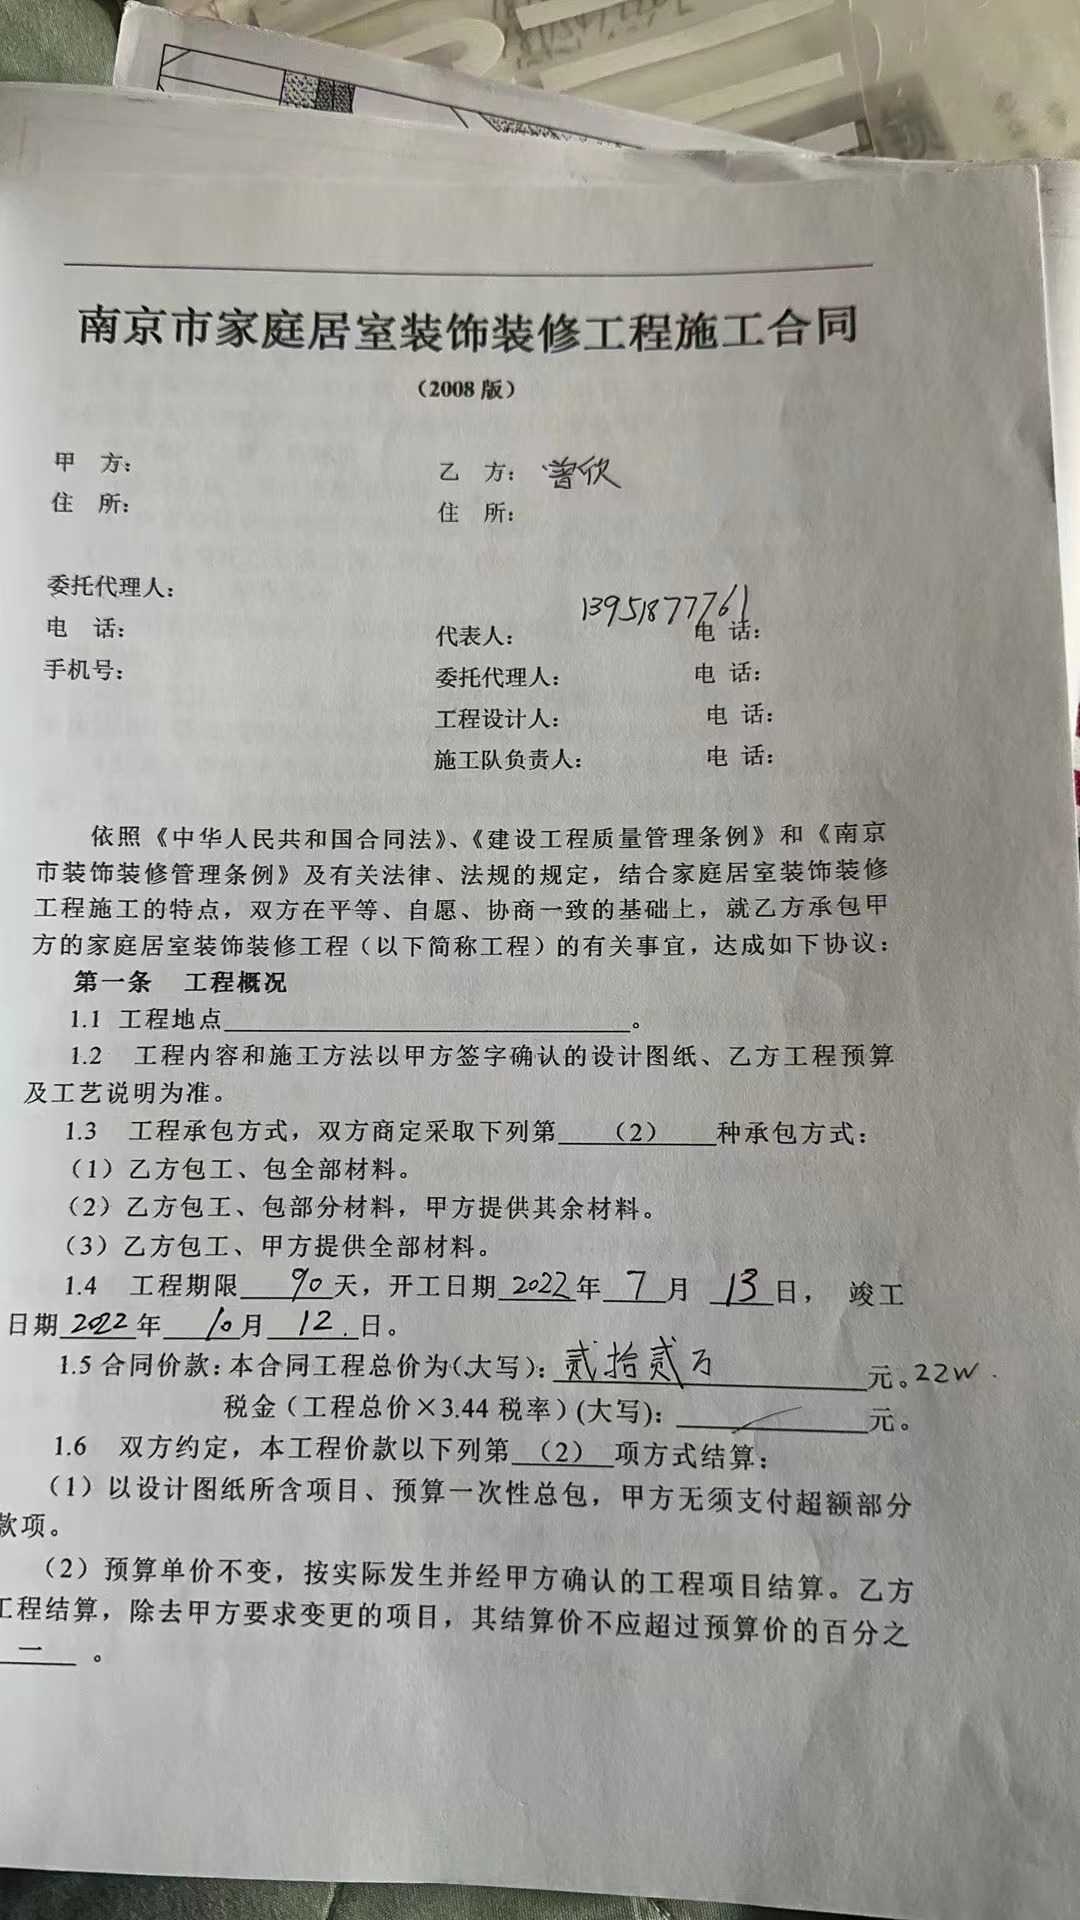 南京市家庭居室装饰装修工程施工合同
（2008 版）
甲 方：
乙 方：曾欣
住 所：
住 所：
委托代理人：
电 话：
手机号：
13951877761
代表人： 电 话：
委托代理人： 电 话：
工程设计人： 电 话：
施工队负责人： 电 话：
依照《中华人民共和国合同法》、《建设工程质量管理条例》和《南京
市装饰装修管理条例》及有关法律、法规的规定，结合家庭居室装饰装修
工程施工的特点，双方在平等、自愿、协商一致的基础上，就乙方承包甲
方的家庭居室装饰装修工程（以下简称工程）的有关事宜，达成如下协议：
第一条 工程概况
1.1 工程地点＿＿＿＿＿＿＿＿。
1.2 工程内容和施工方法以甲方签字确认的设计图纸、乙方工程预算
及工艺说明为准。
1.3 工程承包方式，双方商定采取下列第 （2） 种承包方式：
（1）乙方包工、包全部材料。
（2）乙方包工、包部分材料，甲方提供其余材料。
（3）乙方包工、甲方提供全部材料。
1.4 工程期限 90 天，开工日期 2022 年 7 月 13 日， 竣工
日期 2022 年 10 月 12 . 日。
1.5 合同价款：本合同工程总价为（大写）：贰拾贰万 元。22W .
税金（工程总价×3.44 税率）(大写)： ／ 元。
1.6 双方约定，本工程价款以下列第 （2） 项方式结算：
（1）以设计图纸所含项目、预算一次性总包，甲方无须支付超额部分
款项。
（2）预算单价不变，按实际发生并经甲方确认的工程项目结算。乙方
工程结算，除去甲方要求变更的项目，其结算价不应超过预算价的百分之
一 。